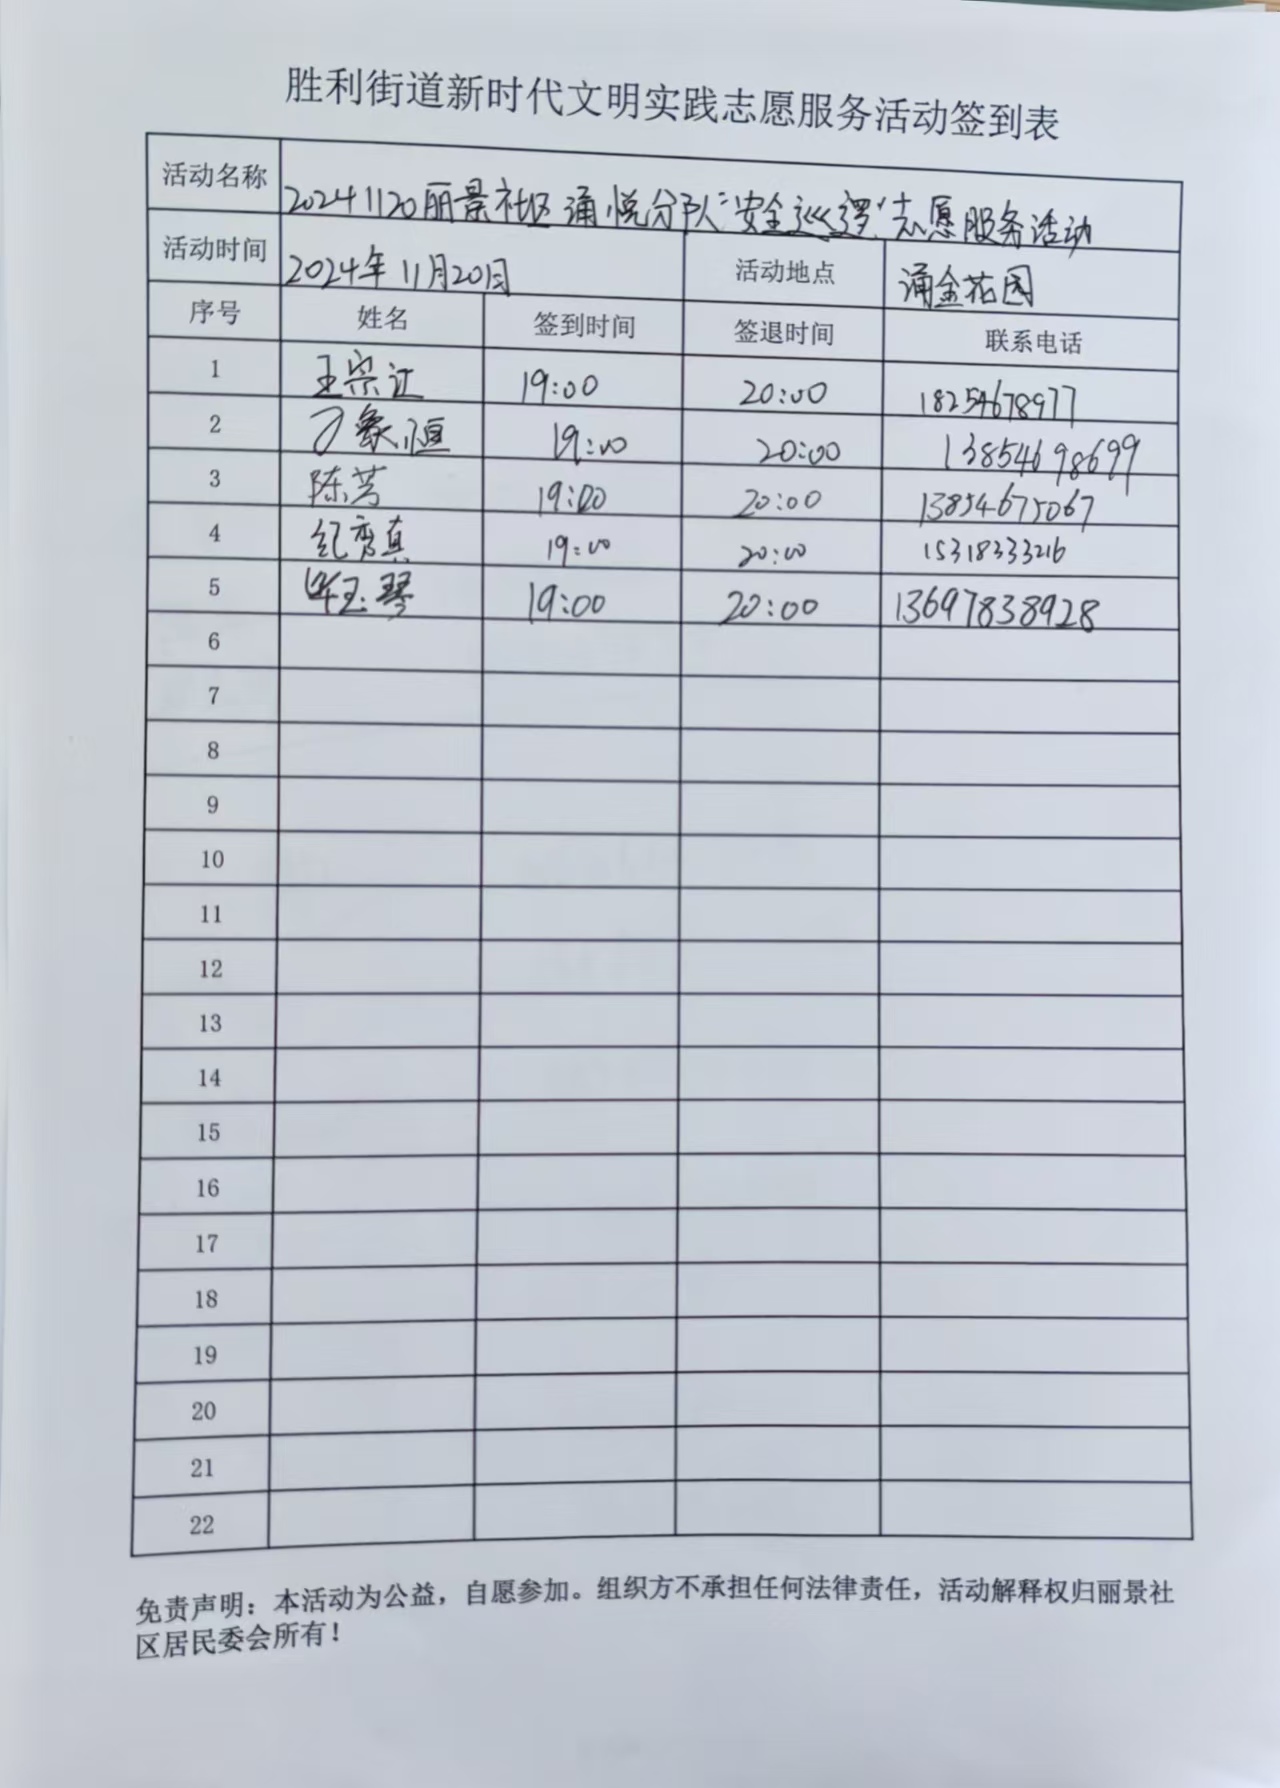 胜利街道新时代文明实践志愿服务活动签到表
活动名称 20241120丽景社区涌悦分队“安全巡逻”志愿服务活动
活动时间 2024年11月20日 活动地点 涌金花园
序号 姓名 签到时间 签退时间 联系电话
1 王宗让 19:00 20:00 18254678977
2 19:00 20:00 13854698699
3 陈芳 19:00 20:00 13854675067
4 纪秀真 19:00 20:00 15318333216
5 毕玉琴 19:00 20:00 13697838928
6
7
8
9
10
11
12
13
14
15
16
17
18
19
20
21
22
免责声明：本活动为公益，自愿参加。组织方不承担任何法律责任，活动解释权归丽景社
区居民委会所有！